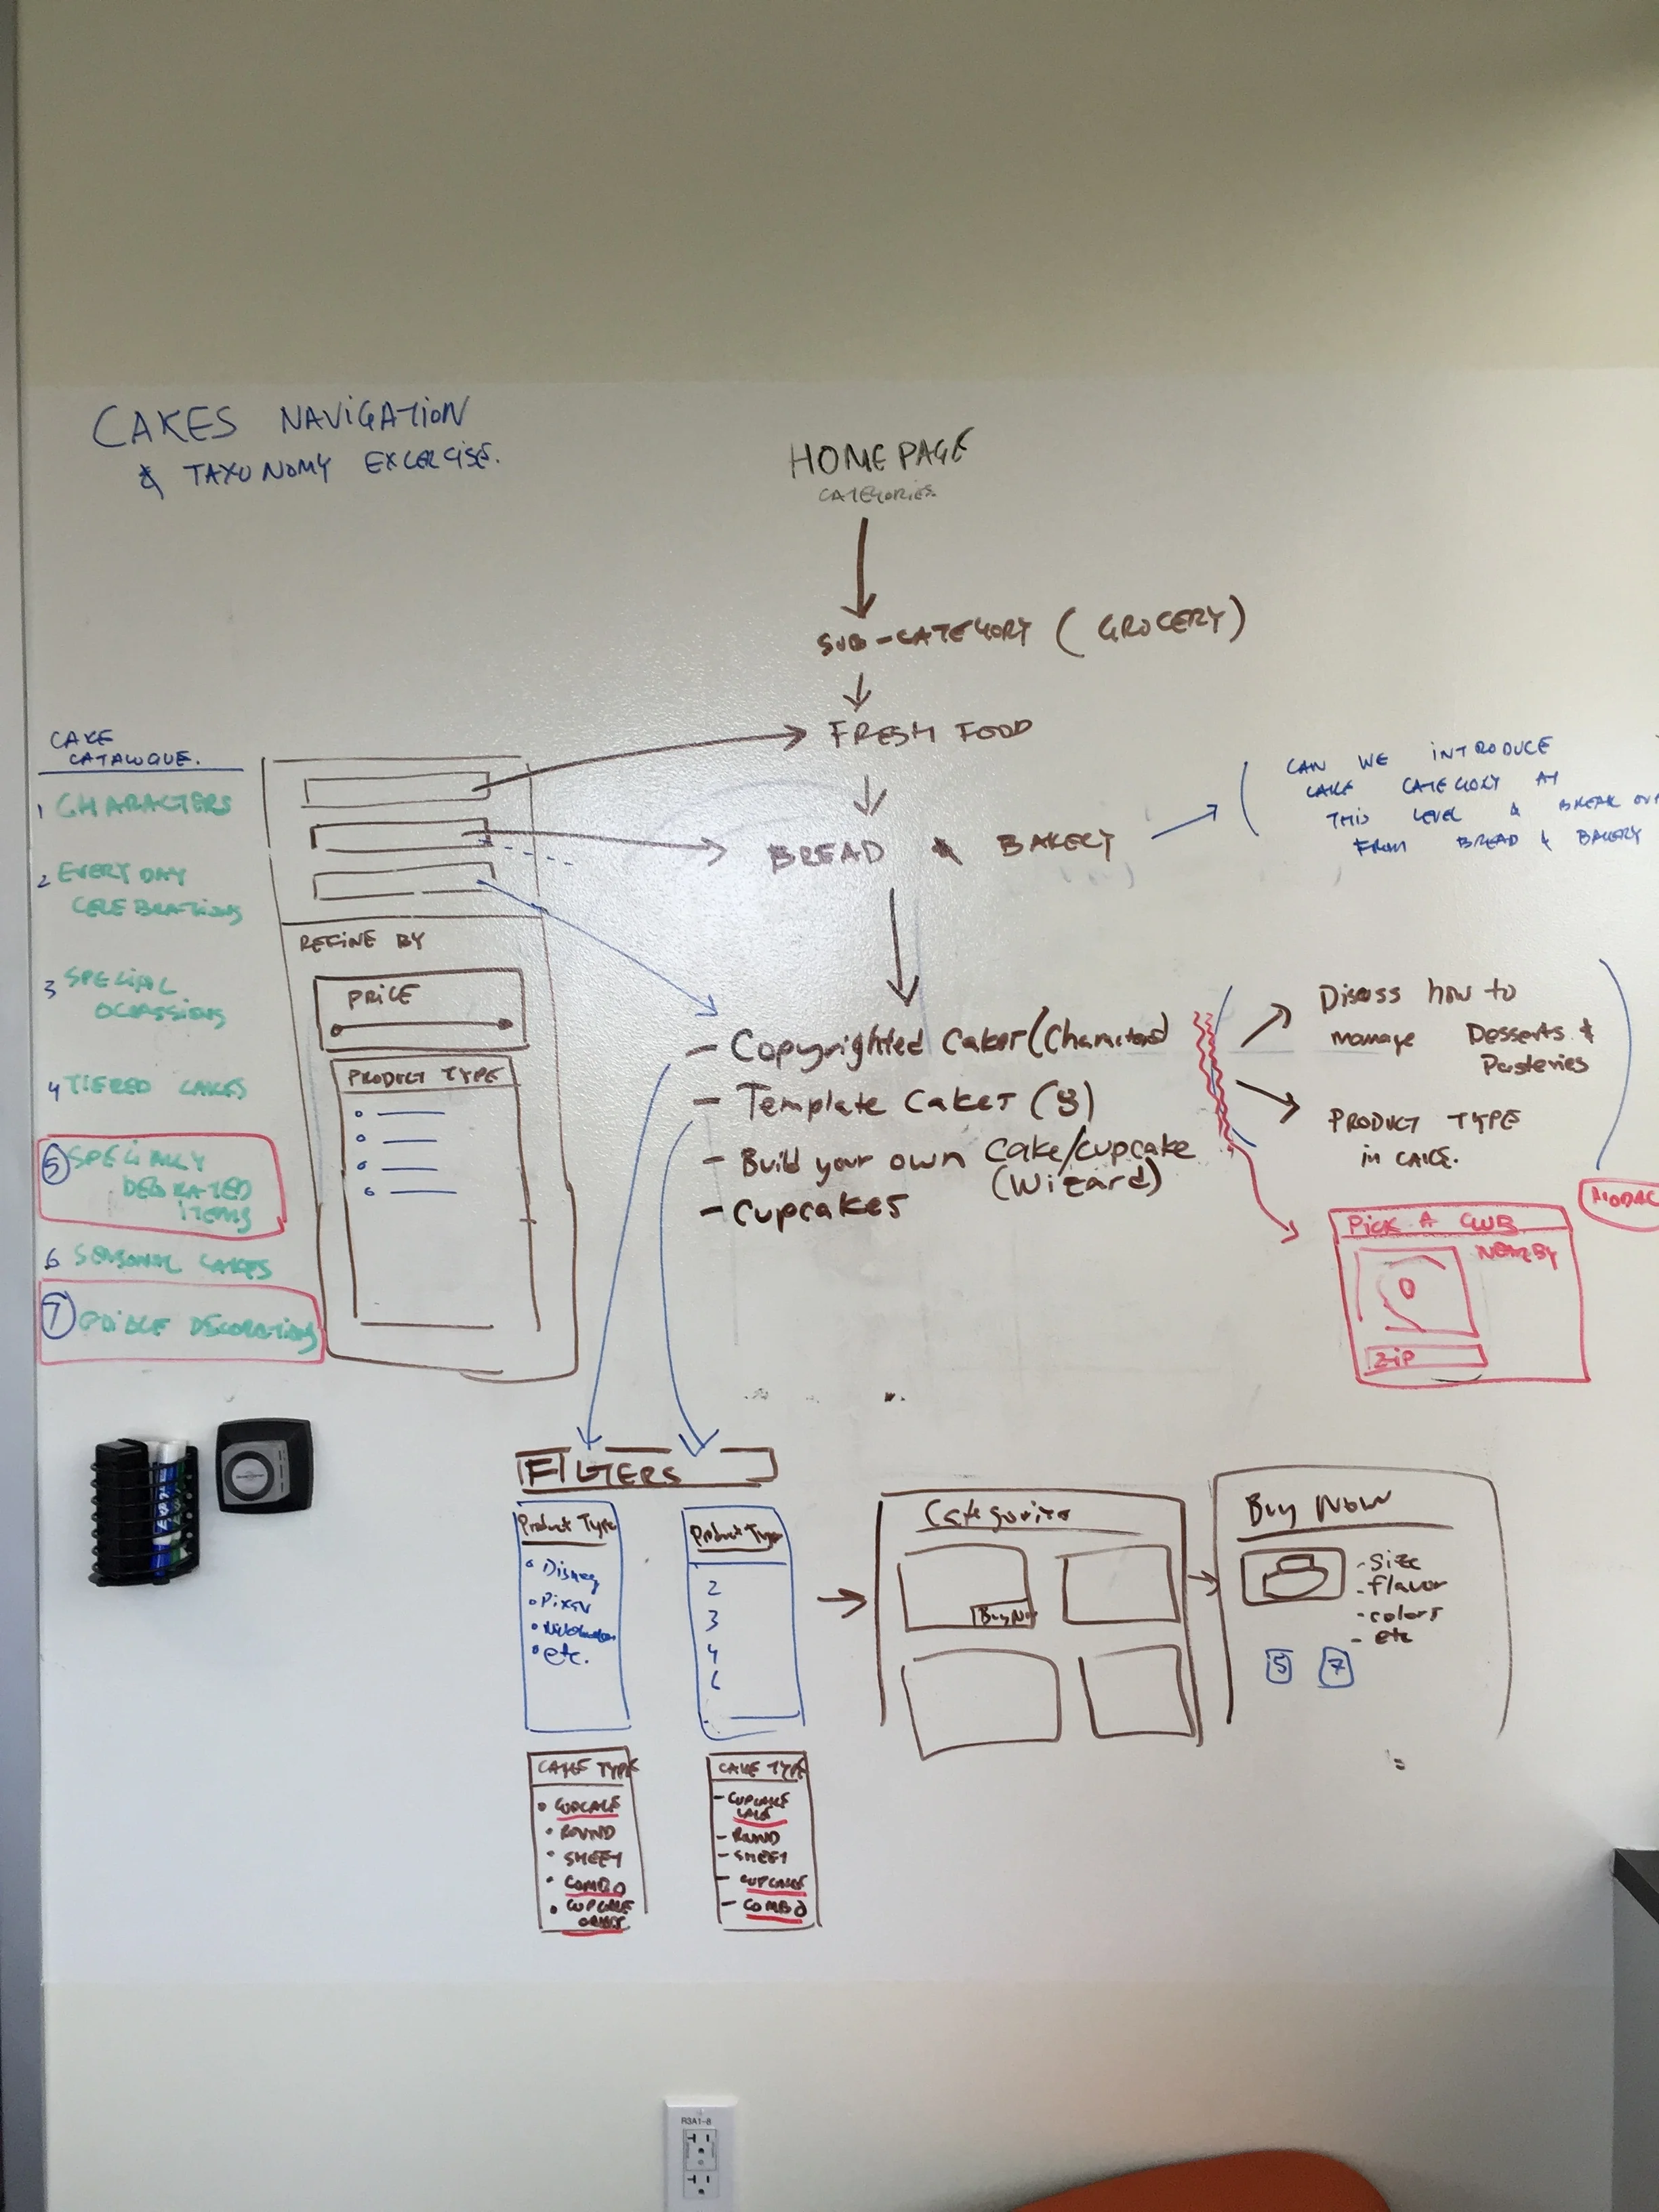 CAKES NAVIGATION
& TAXONOMY EXCERCISE.
HOME PAGE
CATEGORIES.
SUB-CATEGORY (GROCERY)
FRESH FOOD
BREAD & BAKERY
CAN WE INTRODUCE
CAKE CATEGORY AT
THIS LEVEL & BREAK OUT
FROM BREAD & BAKERY
CAKE
CATALOGUE.
1 CHARACTERS
2 EVERYDAY
CELEBRATIONS
3 SPECIAL
OCASSIONS
4 TIERED CAKES
5 SPECIALLY
DECORATED
ITEMS
6 SEASONAL CAKES
7 EDIBLE DECORATIONS
REFINE BY
PRICE
PRODUCT TYPE
- Copyrighted Cakes (Characters)
- Template Cakes (8)
- Build your own Cake/cupcake
(Wizard)
- Cupcakes
Discuss how to
manage Desserts &
Pasteries
PRODUCT TYPE
in CAKE.
MODAL
PICK A CLUB
NEARBY
ZIP
FILTERS
Product Type
• Disney
• Pixar
• etc.
Product Type
2
3
4
6
Categories
Buy Now
Buy Now
- size
- flavor
- colors
- etc
5 7
CAKE TYPE
• CUPCAKE
• ROUND
• SHEET
• COMBO
• CUPCAKE
CAKE TYPE
- CUPCAKE
CAKE
- ROUND
- SHEET
- CUPCAKE
- COMBO
R3A1-8